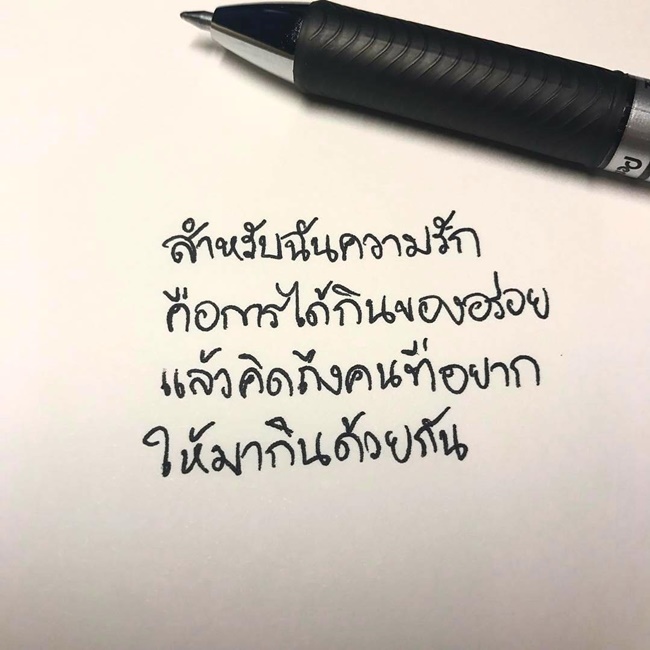 สำหรับฉันความรัก
คือการได้กินของอร่อย
แล้วคิดถึงคนที่อยาก
ให้มากินด้วยกัน